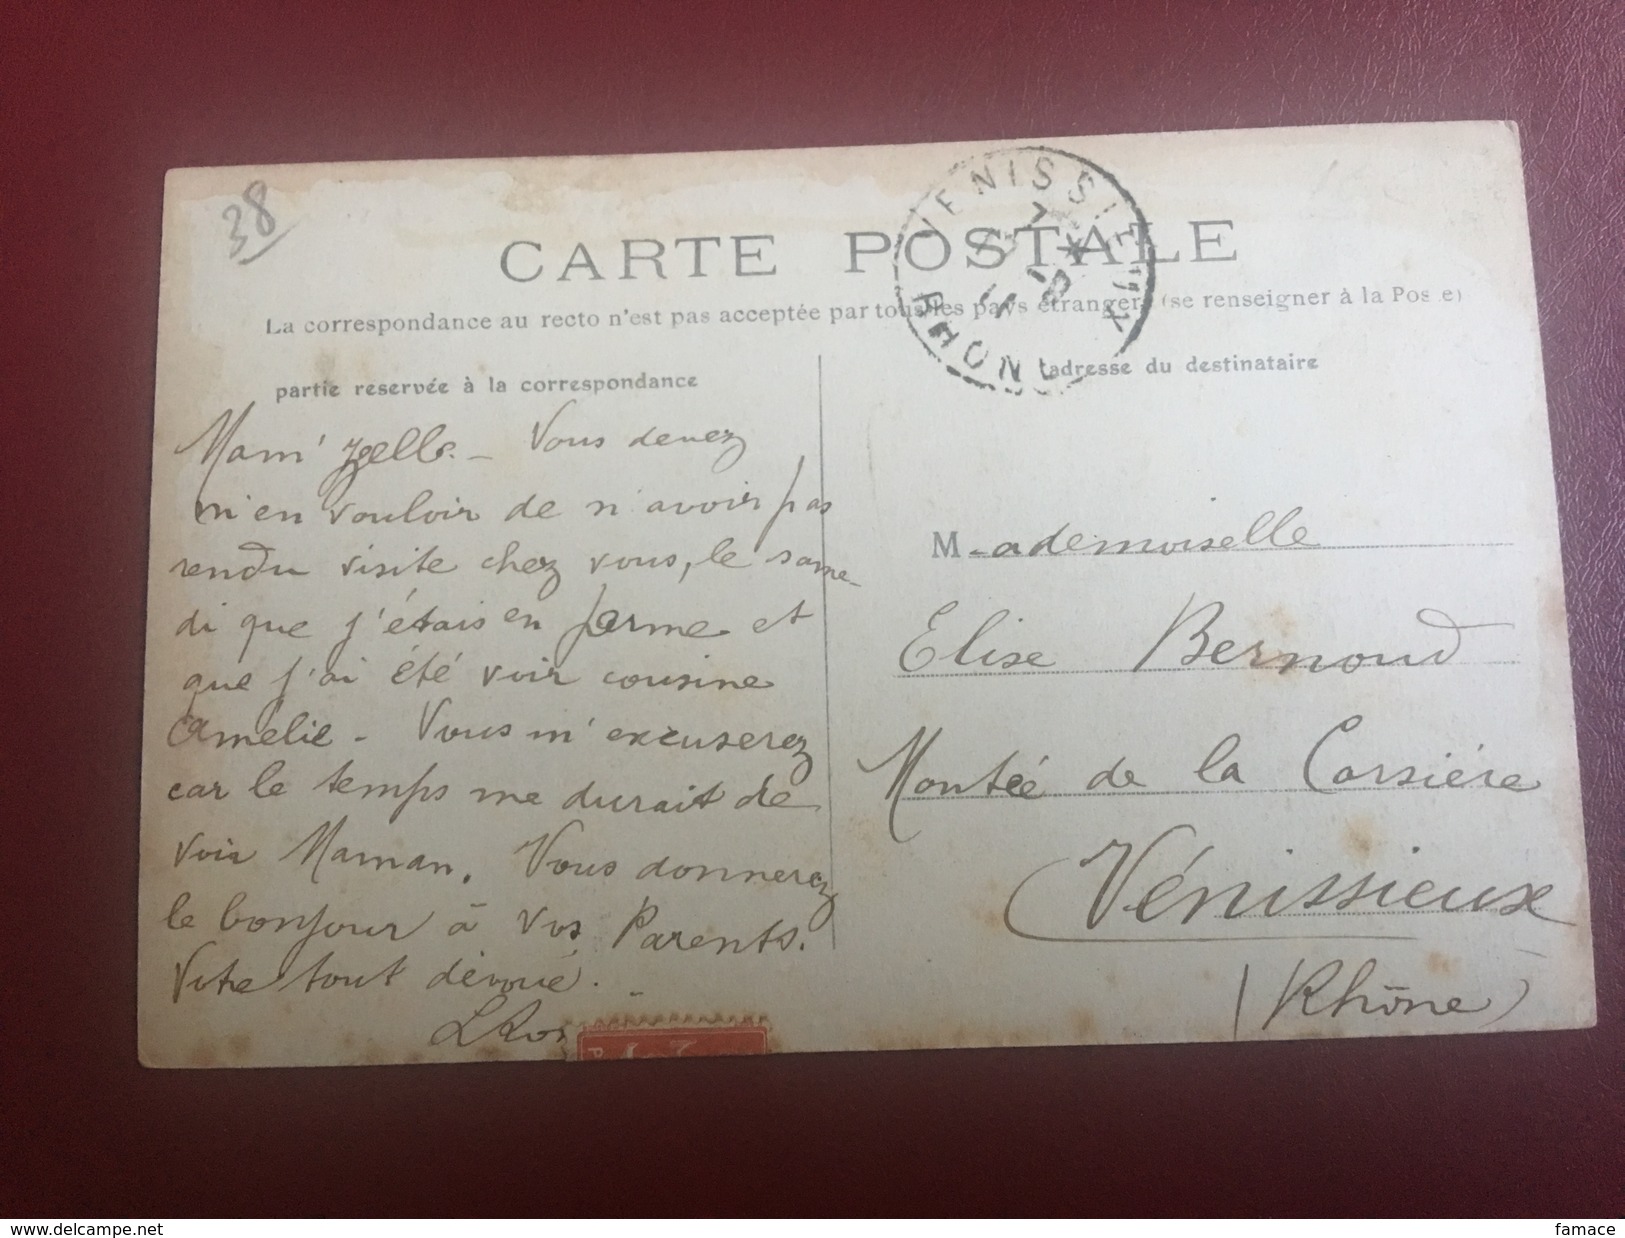 38
CARTE POSTALE
La correspondance au recto n'est pas acceptée par tous les pays étrangers (se renseigner à la Pos e)
partie reservée à la correspondance
adresse du destinataire
VENISSIEUX
RHONE
Mam'zelle. - Vous devez
m'en vouloir de n'avoir pas
rendu visite chez vous, le same-
di que j'étais en perme et
que j'ai été voir cousine
Amelie - Vous m'excuserez
car le temps me durait de
voir Maman. Vous donnerez
le bonjour à vos Parents.
Votre tout dévoué.
M-ademoiselle
Elise Bernoud
Montée de la Carsière
Vénissieux
(Rhône)
www.delcampe.net
famace